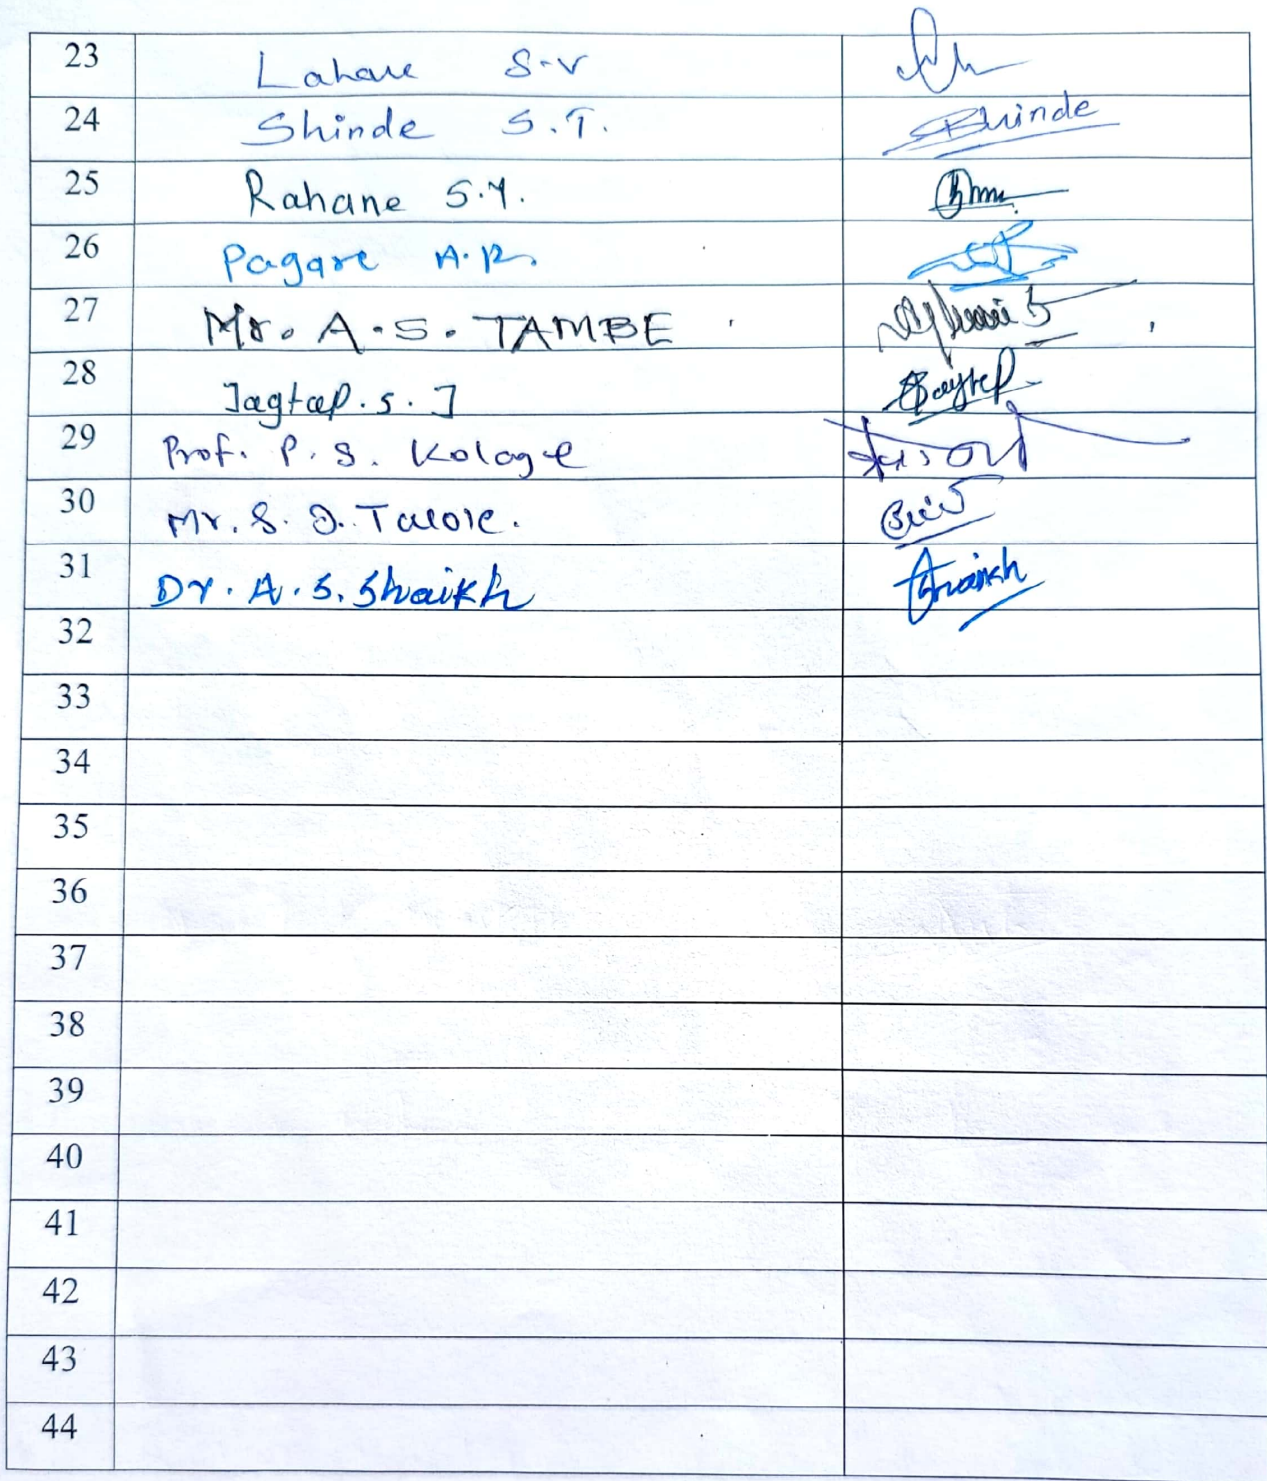 23 Lahare S.V
24 Shinde S.T. Shinde
25 Rahane S.Y.
26 Pagare A.R.
27 Mr. A.S. TAMBE
28 Jagtap. S. J
29 Prof. P. S. Kolage
30 Mr. S. D. Talole.
31 Dr. A. S. Shaikh Shaikh
32
33
34
35
36
37
38
39
40
41
42
43
44